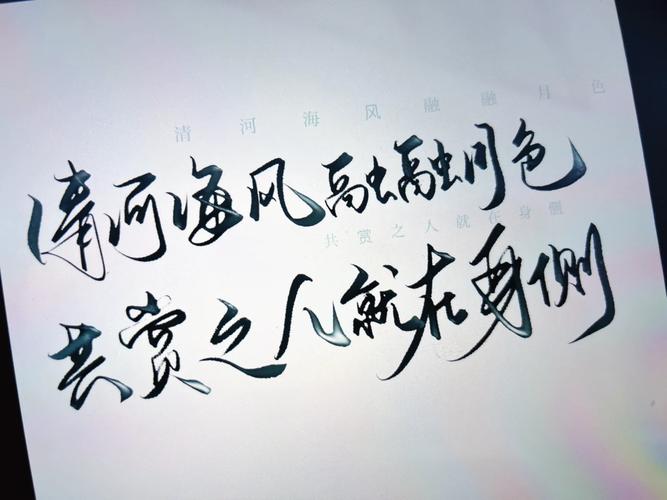 清河海风融融月色
清河海风融融月色
共赏之人就在身侧
共赏之人就在身侧